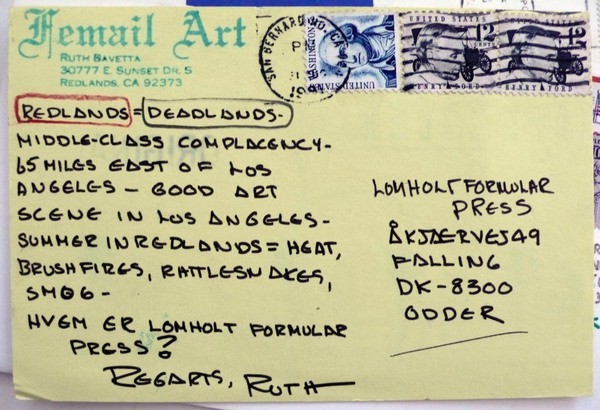 Femail Art
RUTH BAVETTA
30777 E. SUNSET DR. S
REDLANDS, CA 92373
SAN BERNARDINO, CA
PM
UNITED STATES
WASHINGTON
UNITED STATES
12c
HENRY FORD
HENRY FORD
REDLANDS = DEADLANDS-
MIDDLE-CLASS COMPLACENCY-
65 MILES EAST OF LOS
ANGELES - GOOD ART
SCENE IN LOS ANGELES-
SUMMER IN REDLANDS = HEAT,
BRUSHFIRES, RATTLESNAKES,
SMOG-
HVEM ER LOMHOLT FORMULAR
PRESS?
REGARTS, RUTH
LOMHOLT FORMULAR
PRESS
ÅKJÆRVEJ 49
FALLING
DK-8300
ODDER